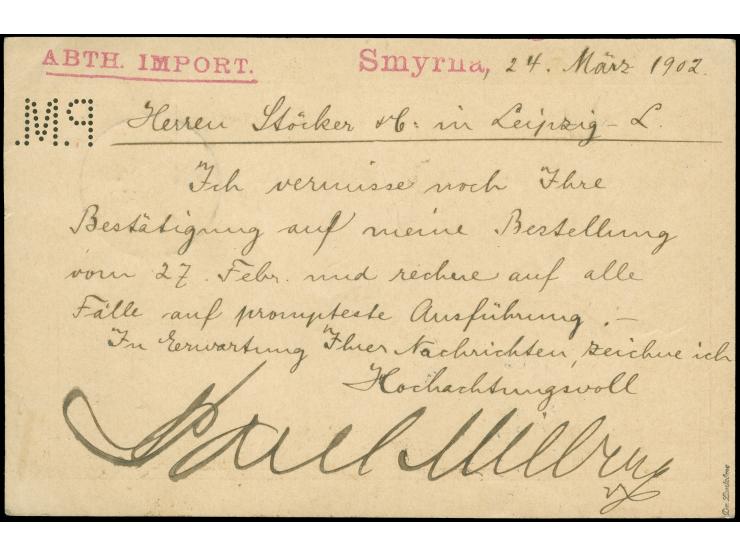 ABTH. IMPORT.
Smyrna, 24. März 1902.
P.M.
Herren Stöcker & C: in Leipzig - L.
Ich vermisse noch Ihre
Bestätigung auf meine Bestellung
vom 27. Febr. und rechne auf alle
Fälle auf prompteste Ausführung. -
In Erwartung Ihrer Nachrichten, zeichne ich
Hochachtungsvoll
Paul